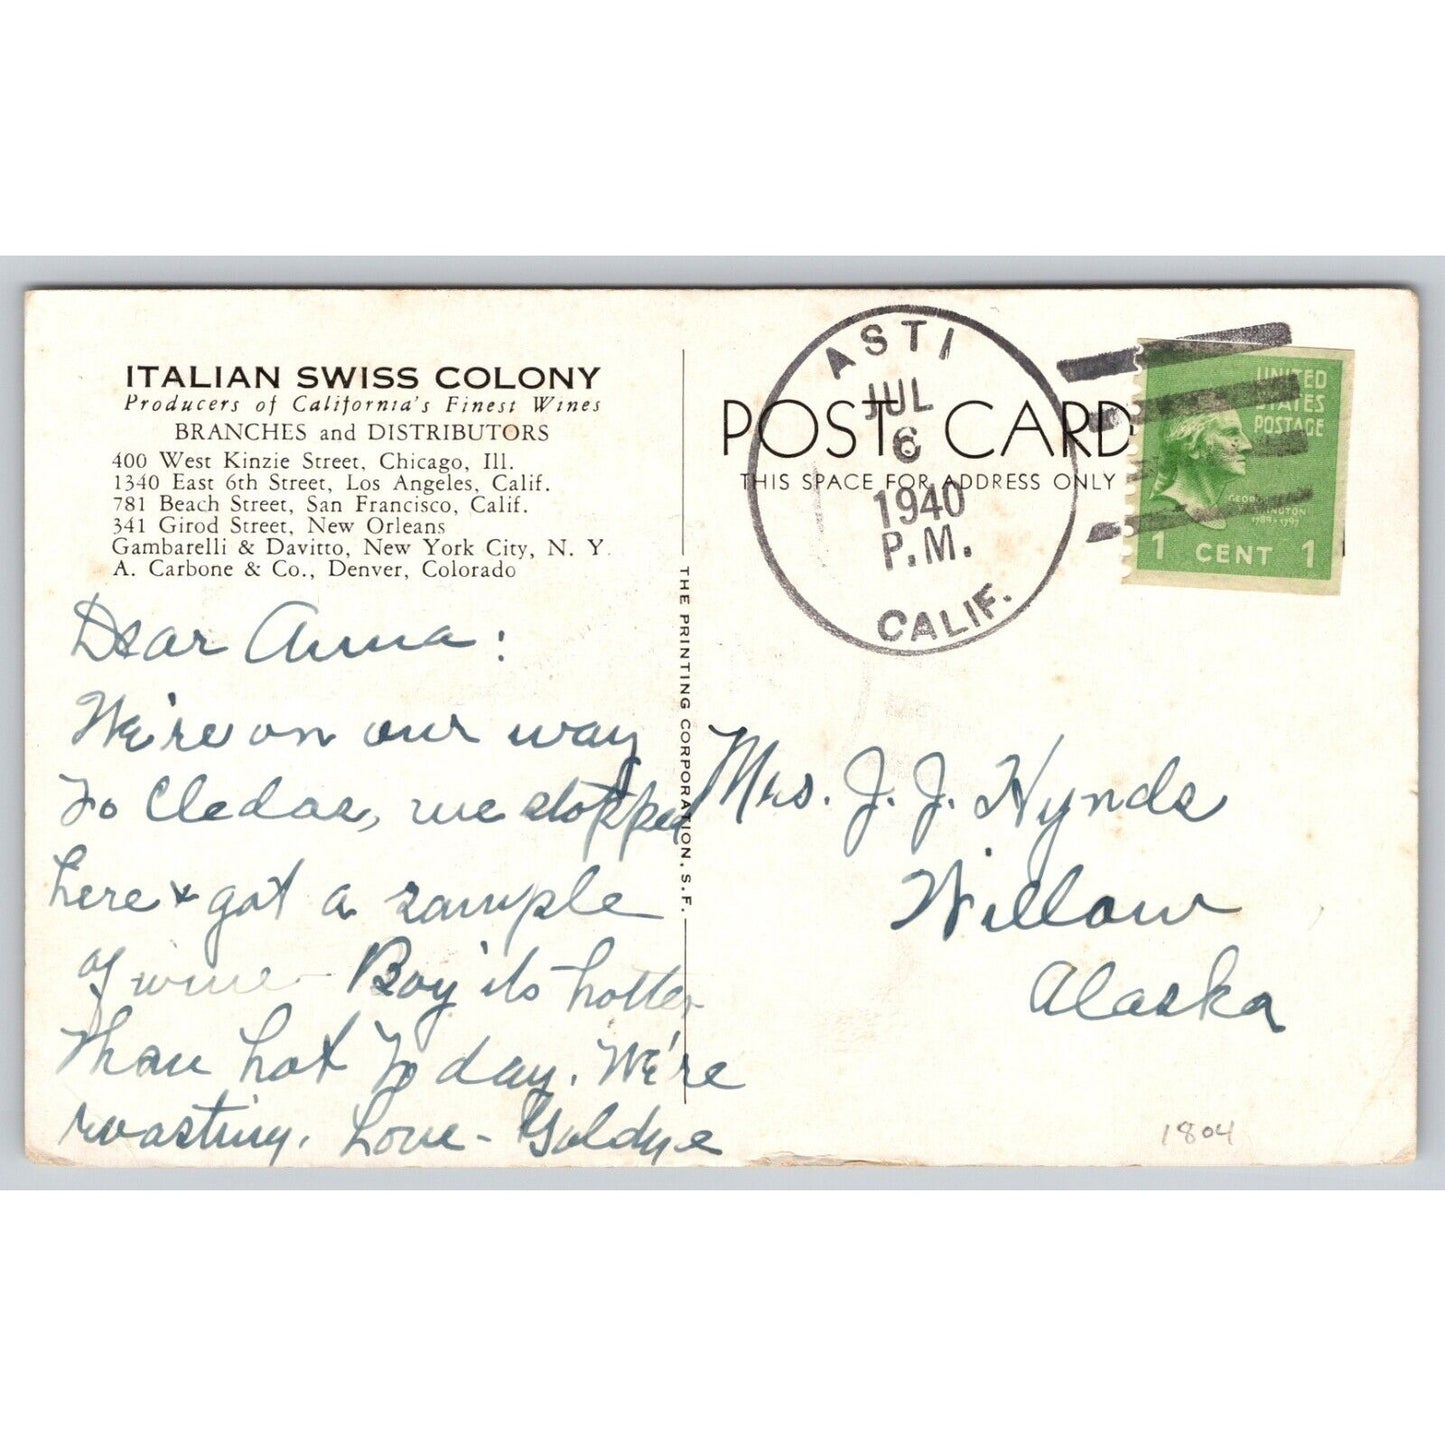 ITALIAN SWISS COLONY
Producers of California's Finest Wines
BRANCHES and DISTRIBUTORS
400 West Kinzie Street, Chicago, Ill.
1340 East 6th Street, Los Angeles, Calif.
781 Beach Street, San Francisco, Calif.
341 Girod Street, New Orleans
Gambarelli & Davitto, New York City, N. Y.
A. Carbone & Co., Denver, Colorado
Dear Anna:
We're on our way
to Cledas, we stopped
here & got a sample
of wine - Boy it's hotter
than hot to day. We're
roasting. Love - Goldye
THE PRINTING CORPORATION, S.F.
POST CARD
THIS SPACE FOR ADDRESS ONLY
ASTI
JUL
6
1940
P.M.
CALIF.
UNITED
STATES
POSTAGE
GEORGE
WASHINGTON
1789-1797
1 CENT 1
Mrs. J. J. Hynds
Willow
Alaska
1804